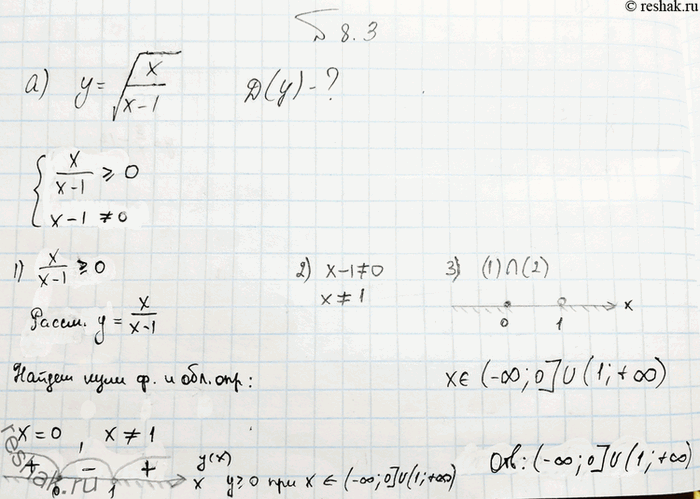 © reshak.ru
№ 8.3
а) y = √(x/(x-1)) D(y) - ?
{ x/(x-1) ≥ 0
x-1 ≠ 0
1) x/(x-1) ≥ 0 2) x-1≠0 3) (1)∩(2)
x ≠ 1
Рассм. y = x/(x-1)
0 1 x
Найдем нули ф. и обл. опр:
x ∈ (-∞; 0] ∪ (1; +∞)
x = 0 , x ≠ 1
+ - + y(x)
0 1 x y ≥ 0 при x ∈ (-∞; 0] ∪ (1; +∞)
Отв: (-∞; 0] ∪ (1; +∞)
reshak.ru